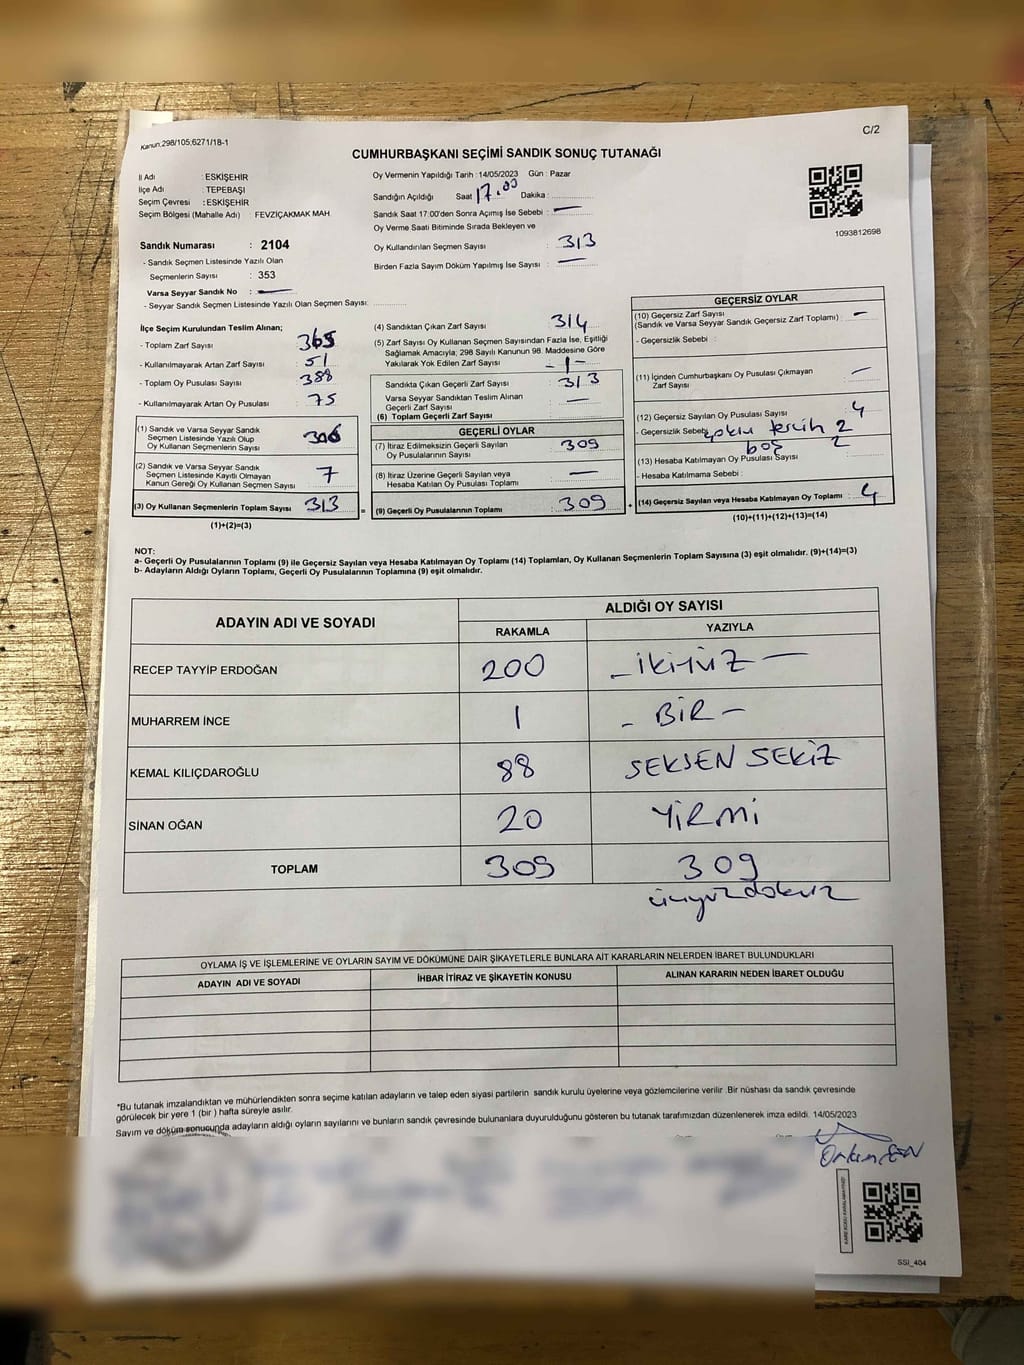 Kanun.298/105;6271/18-1
C/2
CUMHURBAŞKANI SEÇİMİ SANDIK SONUÇ TUTANAĞI
İl Adı : ESKİŞEHİR
İlçe Adı : TEPEBAŞI
Seçim Çevresi : ESKİŞEHİR
Seçim Bölgesi (Mahalle Adı) FEVZİÇAKMAK MAH.
Sandık Numarası : 2104
- Sandık Seçmen Listesinde Yazılı Olan
Seçmenlerin Sayısı : 353
Varsa Seyyar Sandık No : —
- Seyyar Sandık Seçmen Listesinde Yazılı Olan Seçmen Sayısı:
Oy Vermenin Yapıldığı Tarih : 14/05/2023 Gün : Pazar
Sandığın Açıldığı Saat 17.00 Dakika :
Sandık Saat 17:00'den Sonra Açımış İse Sebebi : —
Oy Verme Saati Bitiminde Sırada Bekleyen ve
Oy Kullandırılan Seçmen Sayısı : 313
Birden Fazla Sayım Döküm Yapılmış İse Sayısı : —
1093812698
İlçe Seçim Kurulundan Teslim Alınan;
- Toplam Zarf Sayısı : 365
- Kullanılmayarak Artan Zarf Sayısı : 51
- Toplam Oy Pusulası Sayısı : 388
- Kullanılmayarak Artan Oy Pusulası : 75
(1) Sandık ve Varsa Seyyar Sandık
Seçmen Listesinde Yazılı Olup
Oy Kullanan Seçmenlerin Sayısı : 306
(2) Sandık ve Varsa Seyyar Sandık
Seçmen Listesinde Kayıtlı Olmayan
Kanun Gereği Oy Kullanan Seçmen Sayısı : 7
(3) Oy Kullanan Seçmenlerin Toplam Sayısı : 313
(1)+(2)=(3)
(4) Sandıktan Çıkan Zarf Sayısı : 314
(5) Zarf Sayısı Oy Kullanan Seçmen Sayısından Fazla İse, Eşitliği
Sağlamak Amacıyla; 298 Sayılı Kanunun 98. Maddesine Göre
Yakılarak Yok Edilen Zarf Sayısı : -1-
Sandıkta Çıkan Geçerli Zarf Sayısı : 313
Varsa Seyyar Sandıktan Teslim Alınan
Geçerli Zarf Sayısı : —
(6) Toplam Geçerli Zarf Sayısı :
GEÇERLİ OYLAR
(7) İtiraz Edilmeksizin Geçerli Sayılan
Oy Pusulalarının Sayısı : 309
(8) İtiraz Üzerine Geçerli Sayılan veya
Hesaba Katılan Oy Pusulası Toplamı : —
(9) Geçerli Oy Pusulalarının Toplamı : 309
GEÇERSİZ OYLAR
(10) Geçersiz Zarf Sayısı
(Sandık ve Varsa Seyyar Sandık Geçersiz Zarf Toplamı) : —
- Geçersizlik Sebebi :
(11) İçinden Cumhurbaşkanı Oy Pusulası Çıkmayan
Zarf Sayısı : —
(12) Geçersiz Sayılan Oy Pusulası Sayısı : 4
- Geçersizlik Sebebi : çoklu tercih 2
boş 2
(13) Hesaba Katılmayan Oy Pusulası Sayısı :
- Hesaba Katılmama Sebebi :
(14) Geçersiz Sayılan veya Hesaba Katılmayan Oy Toplamı : 4
(10)+(11)+(12)+(13)=(14)
NOT:
a- Geçerli Oy Pusulalarının Toplamı (9) ile Geçersiz Sayılan veya Hesaba Katılmayan Oy Toplamı (14) Toplamları, Oy Kullanan Seçmenlerin Toplam Sayısına (3) eşit olmalıdır. (9)+(14)=(3)
b- Adayların Aldığı Oyların Toplamı, Geçerli Oy Pusulalarının Toplamına (9) eşit olmalıdır.
ADAYIN ADI VE SOYADI
ALDIĞI OY SAYISI
RAKAMLA YAZIYLA
RECEP TAYYİP ERDOĞAN 200 - İKİYÜZ —
MUHARREM İNCE 1 - BİR -
KEMAL KILIÇDAROĞLU 88 SEKSEN SEKİZ
SİNAN OĞAN 20 YİRMİ
TOPLAM 309 309
üçyüzdokuz
OYLAMA İŞ VE İŞLEMLERİNE VE OYLARIN SAYIM VE DÖKÜMÜNE DAİR ŞİKAYETLERLE BUNLARA AİT KARARLARIN NELERDEN İBARET BULUNDUKLARI
ADAYIN ADI VE SOYADI İHBAR İTİRAZ VE ŞİKAYETİN KONUSU ALINAN KARARIN NEDEN İBARET OLDUĞU
*Bu tutanak imzalandıktan ve mühürlendikten sonra seçime katılan adayların ve talep eden siyasi partilerin sandık kurulu üyelerine veya gözlemcilerine verilir .Bir nüshası da sandık çevresinde
görülecek bir yere 1 (bir ) hafta süreyle asılır.
Sayım ve döküm sonucunda adayların aldığı oyların sayılarını ve bunların sandık çevresinde bulunanlara duyurulduğunu gösteren bu tutanak tarafımızdan düzenlenerek imza edildi. 14/05/2023
SSI_404